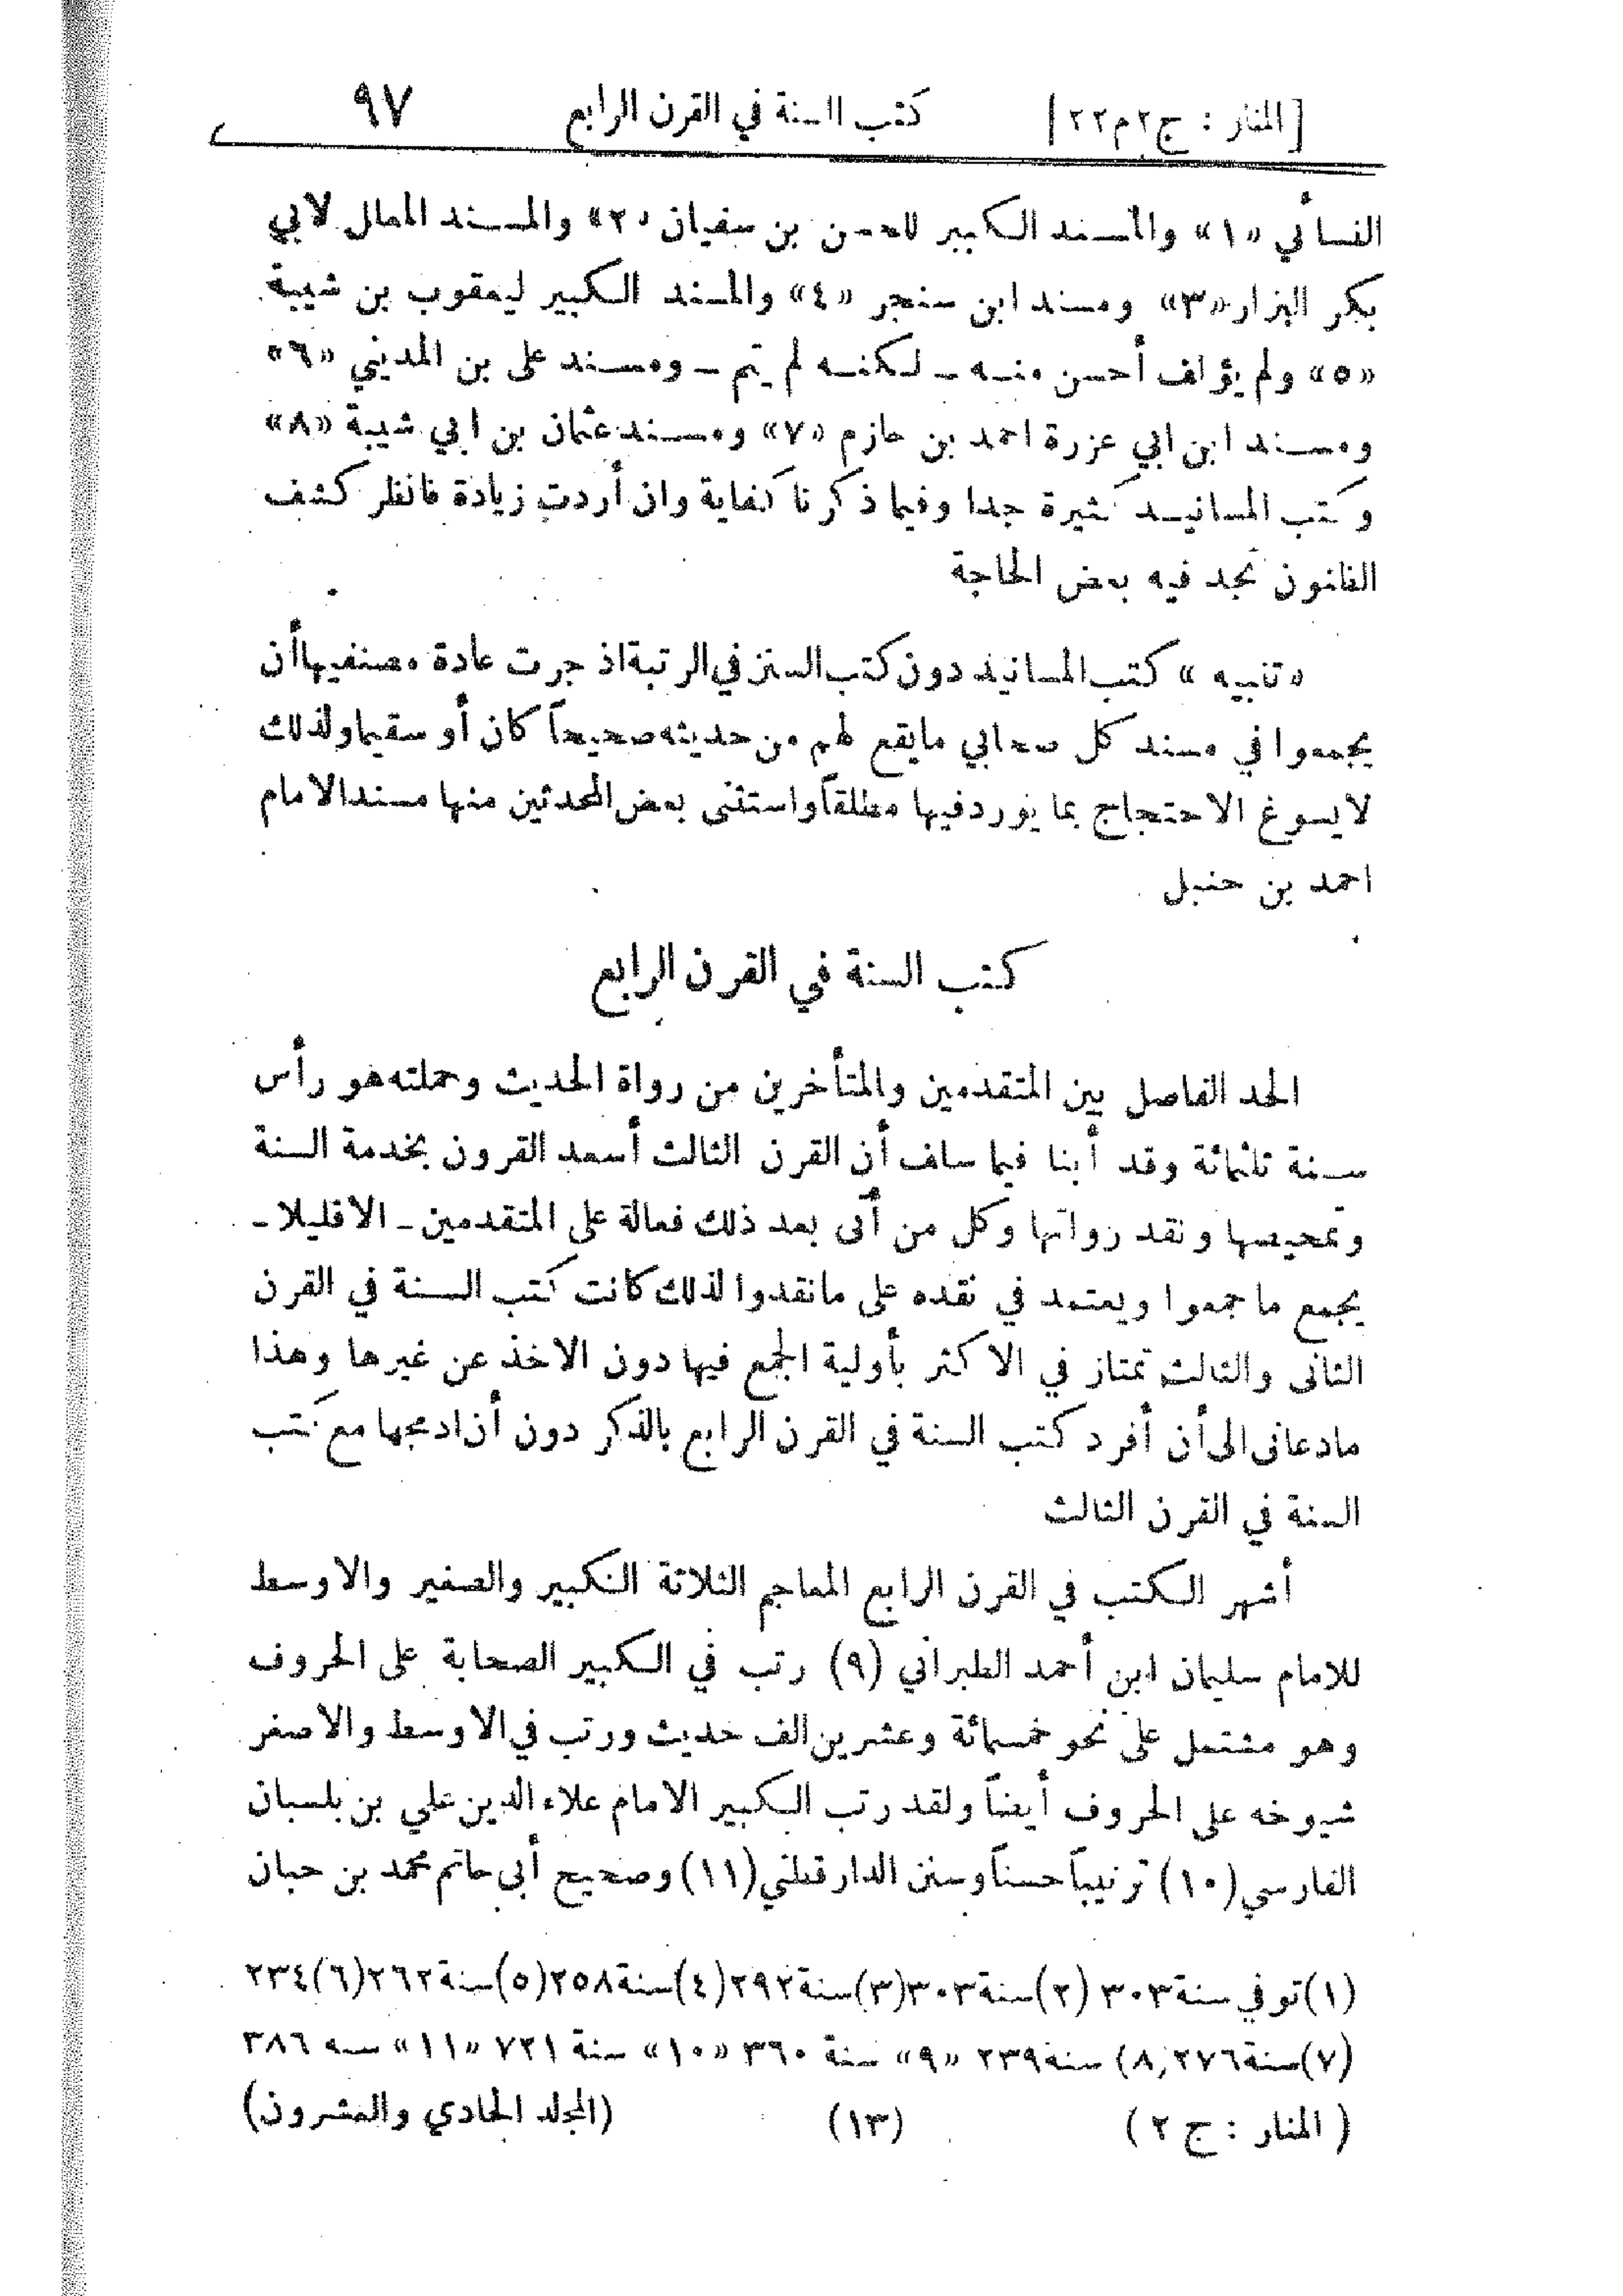 [المنار : ج٢م٢٢] كتب السنة في القرن الرابع ٩٧
النسائي «١» والمسند الكبير للحسن بن سفيان «٢» والمسند المعلل لابي
بكر البزار «٣» ومسند ابن سنجر «٤» والمسند الكبير ليعقوب بن شيبة
«٥» ولم يؤلف أحسن منه ـ لكنه لم يتم ـ ومسند على بن المديني «٦»
ومسند ابن ابي عزرة احمد بن حازم «٧» ومسند عثمان بن ابي شيبة «٨»
وكتب المسانيد كثيرة جدا وفيما ذكرنا كفاية وان أردت زيادة فانظر كشف
الظنون تجد فيه بعض الحاجة
«تنبيه» كتب المسانيد دون كتب السنن في الرتبة اذ جرت عادة مصنفيها أن
يجمعوا في مسند كل صحابي مايقع لهم من حديثه صحيحاً كان أو سقيما ولذلك
لايسوغ الاحتجاج بما يورد فيها مطلقاً واستثنى بعض المحدثين منها مسند الامام
احمد بن حنبل
كتب السنة في القرن الرابع
الحد الفاصل بين المتقدمين والمتأخرين من رواة الحديث وحملته هو رأس
سنة ثلثمائة وقد أبنا فيما سلف أن القرن الثالث أسعد القرون بخدمة السنة
وتمحيصها ونقد رواتها وكل من أتى بعد ذلك فعالة على المتقدمين ـ الاقليلا ـ
يجمع ما جمعوا ويعتمد في نقده على مانقدوا لذلك كانت كتب السنة في القرن
الثانى والثالث تمتاز في الاكثر بأولية الجمع فيها دون الاخذ عن غيرها وهذا
مادعانى الى أن أفرد كتب السنة في القرن الرابع بالذكر دون أن ادمجها مع كتب
السنة في القرن الثالث
أشهر الكتب في القرن الرابع المعاجم الثلاثة الكبير والصغير والاوسط
للامام سليمان ابن أحمد الطبراني (٩) رتب في الكبير الصحابة على الحروف
وهو مشتمل على نحو خمسمائة وعشرين الف حديث ورتب في الاوسط والاصغر
شيوخه على الحروف أيضاً ولقد رتب الكبير الامام علاء الدين علي بن بلسبان
الفارسي (١٠) ترتيباً حسناً وسنن الدارقطني (١١) وصحيح أبي حاتم محمد بن حبان
(١) توفي سنة ٣٠٣ (٢) سنة ٣٠٣ (٣) سنة ٢٩٢ (٤) سنة ٢٥٨ (٥) سنة ٢٦٢ (٦) ٢٣٤
(٧) سنة ٢٧٦ ,٨) سنه ٢٣٩ «٩» سنة ٣٦٠ «١٠» سنة ٧٢١ «١١» سه ٣٨٦
(المنار : ج ٢) (١٣) (المجلد الحادي والعشرون)